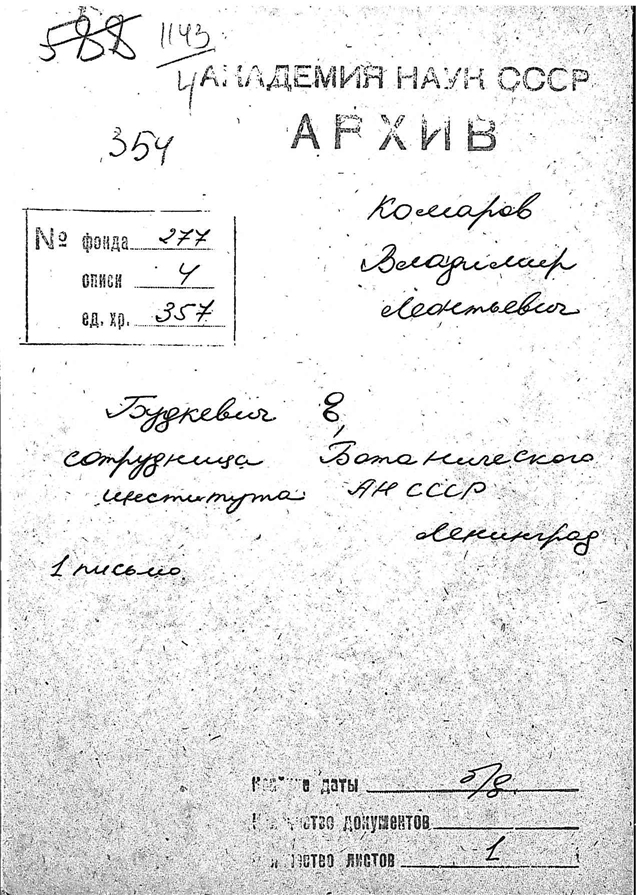 588 1143
4
АКАДЕМИЯ НАУК СССР
АРХИВ
354
Комаров
Владимир
Леонтьевич
№ фонда 277
описи 4
ед. хр. 357
Будкевич
сотрудница Ботанического
института АН СССР
Ленинград
1 письмо
Крайние даты б/д.
Количество документов
Количество листов 1